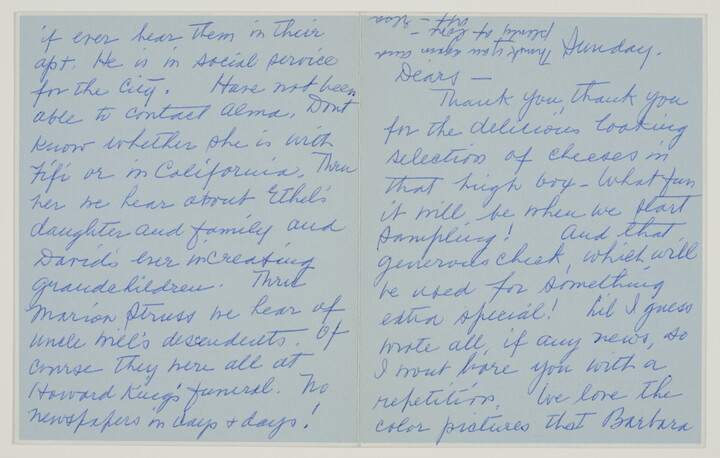 Sunday.
Dears —
Thank you, thank you
for the delicious looking
selection of cheeses in
that high box – What fun
it will be when we start
sampling! And that
generous check, which will
be used for something
extra special! Lil I guess
wrote all, if any news, so
I wont bore you with a
repetition. We love the
color pictures that Barbara
if ever hear them in their
apt. He is in social service
for the City. Have not been
able to contact Alma. Dont
know whether she is with
Fifi or in California. Thru
her we hear about Ethel's
daughter and family and
David's ever increasing
grandchildren. Thru
Marion Struss we hear of
Uncle Will's descendents. Of
course they were all at
Howard King's funeral. No
newspapers in days & days!
Thank you again and
plenty of love –